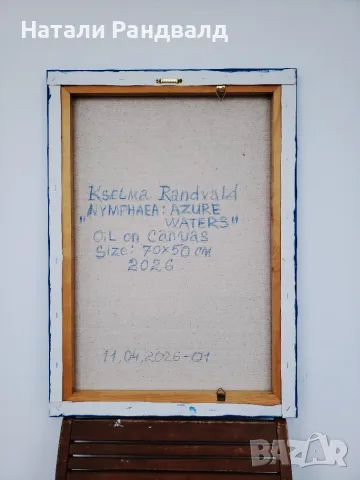 Натали Рандвалд
Kselma Randvald
"NYMPHAEA: AZURE
WATERS"
Oil on Canvas
Size: 70x50 cm
2026
11.04.2026-01
BAZAR